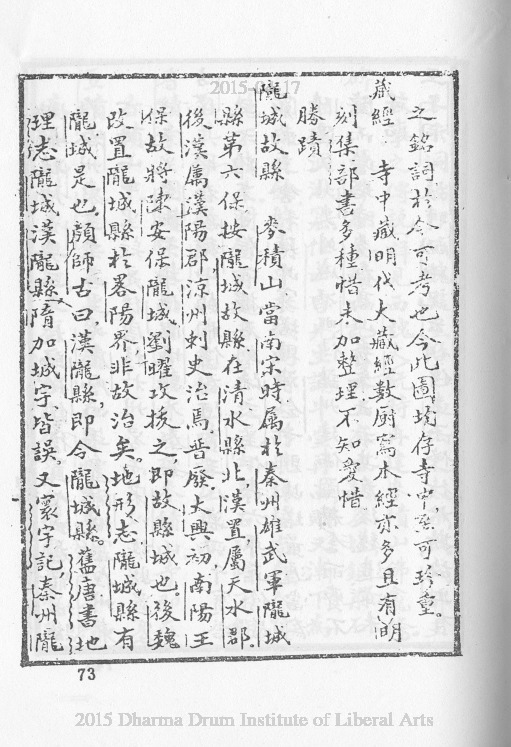 2015
之銘詞於今可考也今此圖尚存寺中至可珍重。
藏經 寺中藏明代大藏經数厨寫本經亦多且有明
刻集部書多種惜未加整理不知愛惜
勝蹟
隴城故縣 麥積山當南宋時属於秦州雄武軍隴城
縣第六保按隴城故縣在清水縣北漢置屬天水郡。
後漢属漢陽郡涼州刺史治焉晋廢大興初南陽王
保故將陳安保隴城劉曜攻拔之即故縣城也。後魏
改置隴城縣於畧陽界非故治矣。地形志隴城縣有
隴城是也。顏師古曰漢隴縣即今隴城縣。舊唐書地
理志隴城漢隴縣隋加城字皆誤。又寰宇記秦州隴
73
2015 Dharma Drum Institute of Liberal Arts